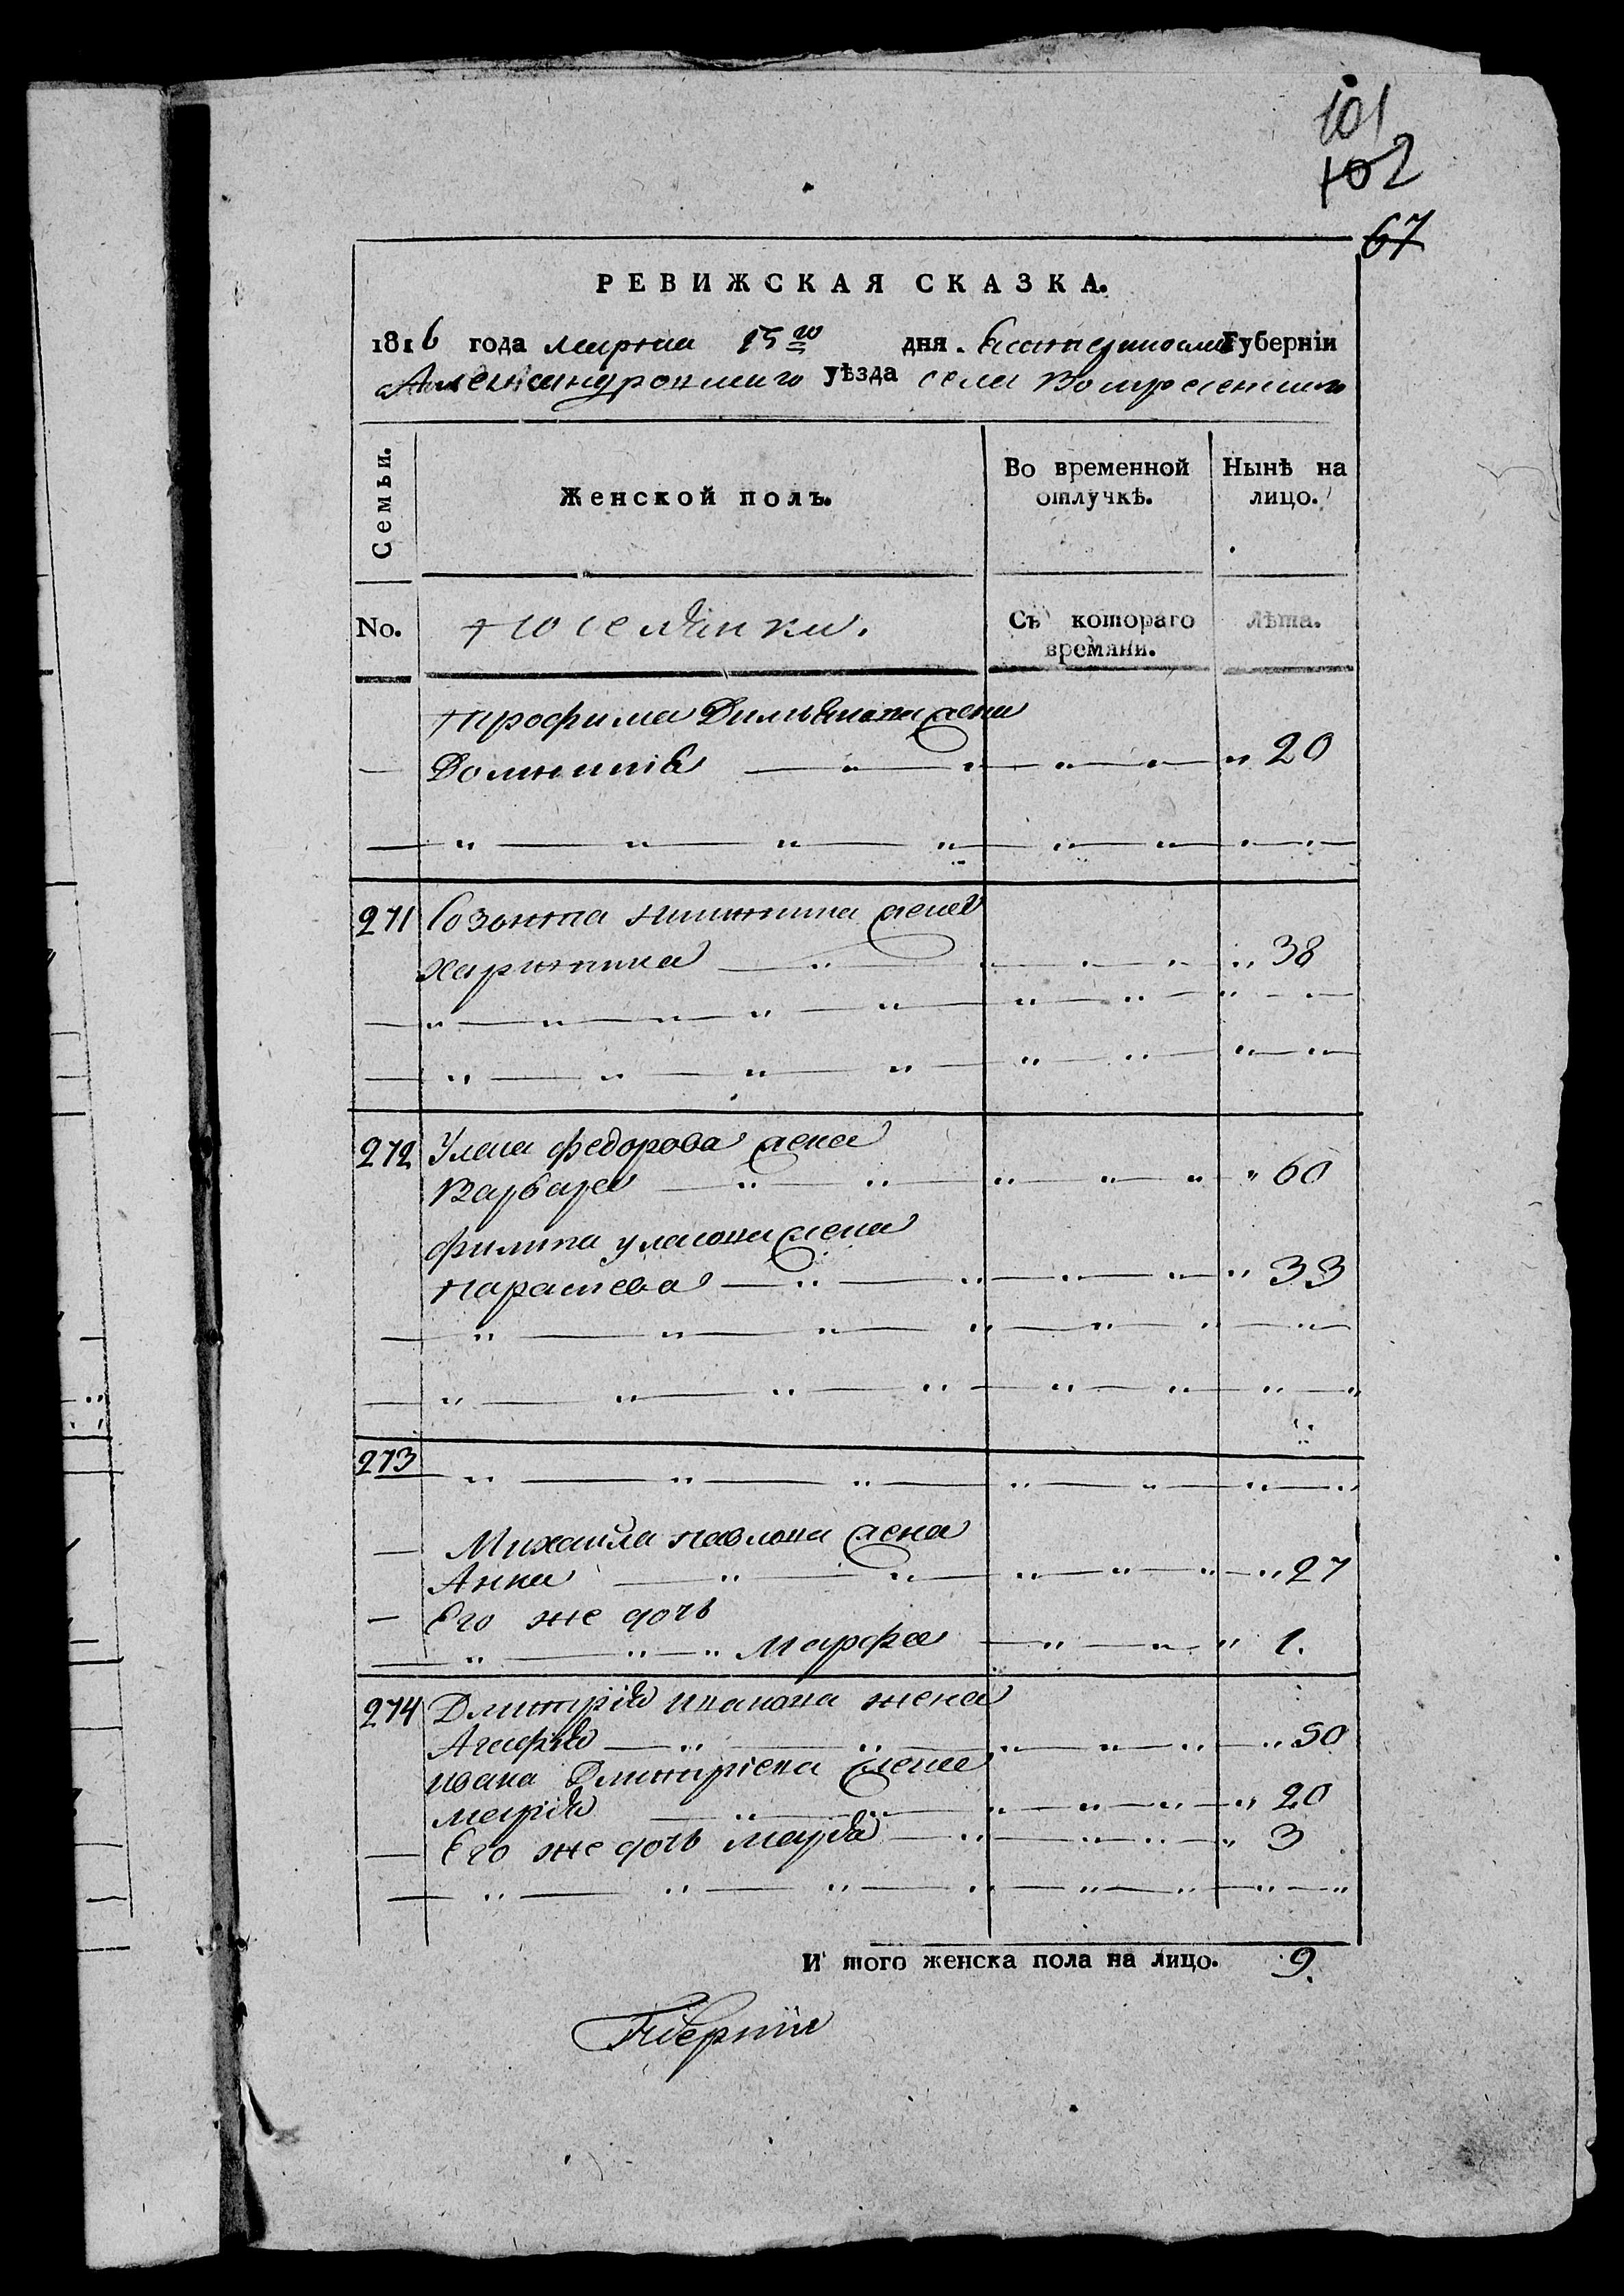 101
102
67
РЕВИЖСКАЯ СКАЗКА.
1816 года марта 15го дня. Екатеринослав Губерніи
Александровскаго уѣзда села Вознесенскаго
Семьи. Женской полъ. Во временной отлучкѣ. Нынѣ на лицо.
No. поселянки. Съ котораго времяни. Лѣта.
трофима Демьянова жена
Домникія 20
271 Созонта никитина жена
харитина 38
272 Уласа федорова жена
Варвара 60
филипа уласова жена
параскева 33
273
Михаила павлова жена
Анна 27
Его же дочь
Марфа 1.
274 Дмитрія иванова жена
Агафія 50
ивана Дмитріева жена
марія 20
Его же дочь марія 3
И того женска пола на лицо. 9.
Губерніи